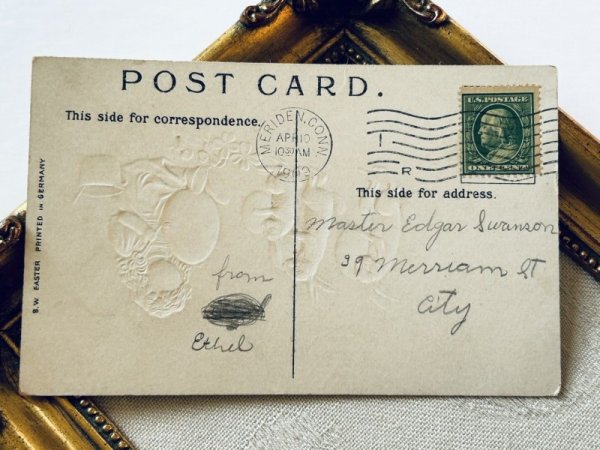 POST CARD.
This side for correspondence.
MERIDEN, CONN.
APR 10
10 30 AM
1909
U.S. POSTAGE
ONE CENT
R
This side for address.
Master Edgar Swanson
39 Merriam St
City
from
Ethel
B.W. EASTER PRINTED IN GERMANY